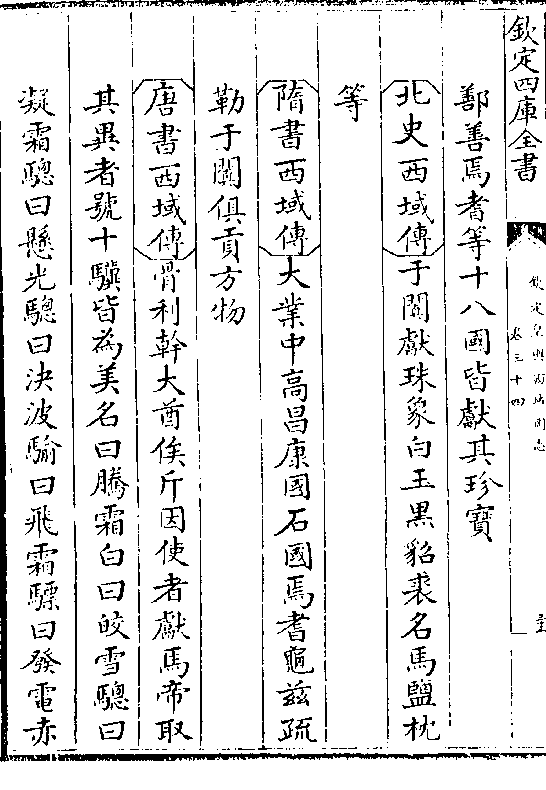 欽定四庫全書
欽定皇輿西域圖志
卷三十四
鄯善焉耆等十八國皆獻其珍寶
北史西域傳于闐獻珠象白玉黑貂裘名馬鹽枕
等
隋書西域傳大業中高昌康國石國焉耆龜兹疏
勒于闐俱貢方物
唐書西域傳骨利幹大酋俟斤因使者獻馬帝取
其異者號十驥皆為美名曰騰霜白曰皎雪驄曰
凝霜驄曰懸光驄曰決波騟曰飛霞驃曰發電赤